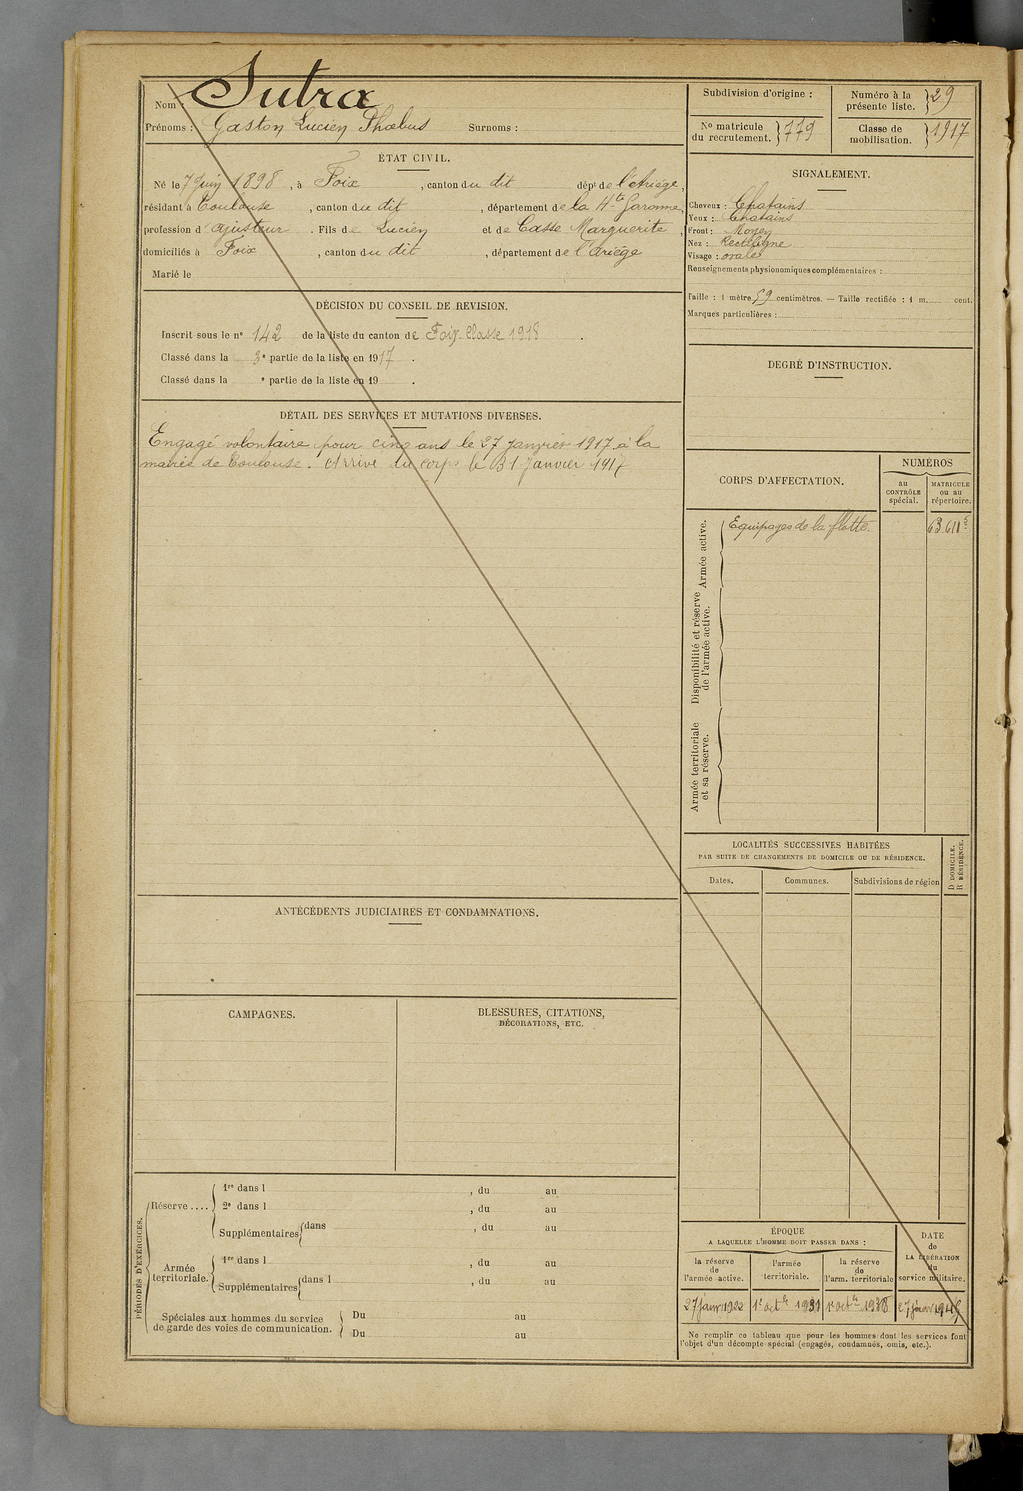 Nom : Sutra
Prénoms : Gaston Lucien Phœbus Surnoms :
Subdivision d'origine :
Numéro à la présente liste. } 29
No matricule du recrutement. } 779
Classe de mobilisation. } 1917
ÉTAT CIVIL.
Né le 7 Juin 1898, à Foix, canton du dit dépt de l'Ariège,
résidant à Toulouse, canton du dit, département de la Hte Garonne,
profession d'ajusteur. Fils de Lucien et de Casse Marguerite,
domiciliés à Foix, canton du dit, département de l'Ariège
Marié le
SIGNALEMENT.
Cheveux : Chatains
Yeux : Chatains
Front : Moyen
Nez : Rectiligne
Visage : ovale
Renseignements physionomiques complémentaires :
Taille : 1 mètre 59 centimètres. — Taille rectifiée : 1 m. cent.
Marques particulières :
DÉCISION DU CONSEIL DE REVISION.
Inscrit sous le no 142 de la liste du canton de Foix Classe 1918.
Classé dans la 3e partie de la liste en 1917.
Classé dans la e partie de la liste en 19 .
DEGRÉ D'INSTRUCTION.
DÉTAIL DES SERVICES ET MUTATIONS DIVERSES.
Engagé volontaire pour cinq ans le 27 janvier 1917 à la
mairie de Toulouse. Arrivé au corps le 31 Janvier 1917
CORPS D'AFFECTATION.
NUMÉROS
au CONTRÔLE spécial.
MATRICULE ou au répertoire.
Armée active.
Equipages de la flotte. 63.611
Disponibilité et réserve de l'armée active.
Armée territoriale et sa réserve.
LOCALITÉS SUCCESSIVES HABITÉES
PAR SUITE DE CHANGEMENTS DE DOMICILE OU DE RÉSIDENCE.
D DOMICILE.
R RÉSIDENCE.
Dates. Communes. Subdivisions de région
ANTÉCÉDENTS JUDICIAIRES ET CONDAMNATIONS.
CAMPAGNES.
BLESSURES, CITATIONS,
DÉCORATIONS, ETC.
PÉRIODES D'EXERCICES.
Réserve....
1re dans l , du au
2e dans l , du au
Supplémentaires dans , du au
Armée territoriale.
1re dans l , du au
Supplémentaires dans l , du au
Spéciales aux hommes du service
de garde des voies de communication.
Du au
Du au
ÉPOQUE
A LAQUELLE L'HOMME DOIT PASSER DANS :
la réserve de l'armée active.
l'armée territoriale.
la réserve de l'arm. territoriale
DATE de LA LIBÉRATION du service militaire.
27 janv 1922
Ne remplir ce tableau que pour les hommes dont les services font
l'objet d'un décompte spécial (engagés, condamnés, omis, etc.).